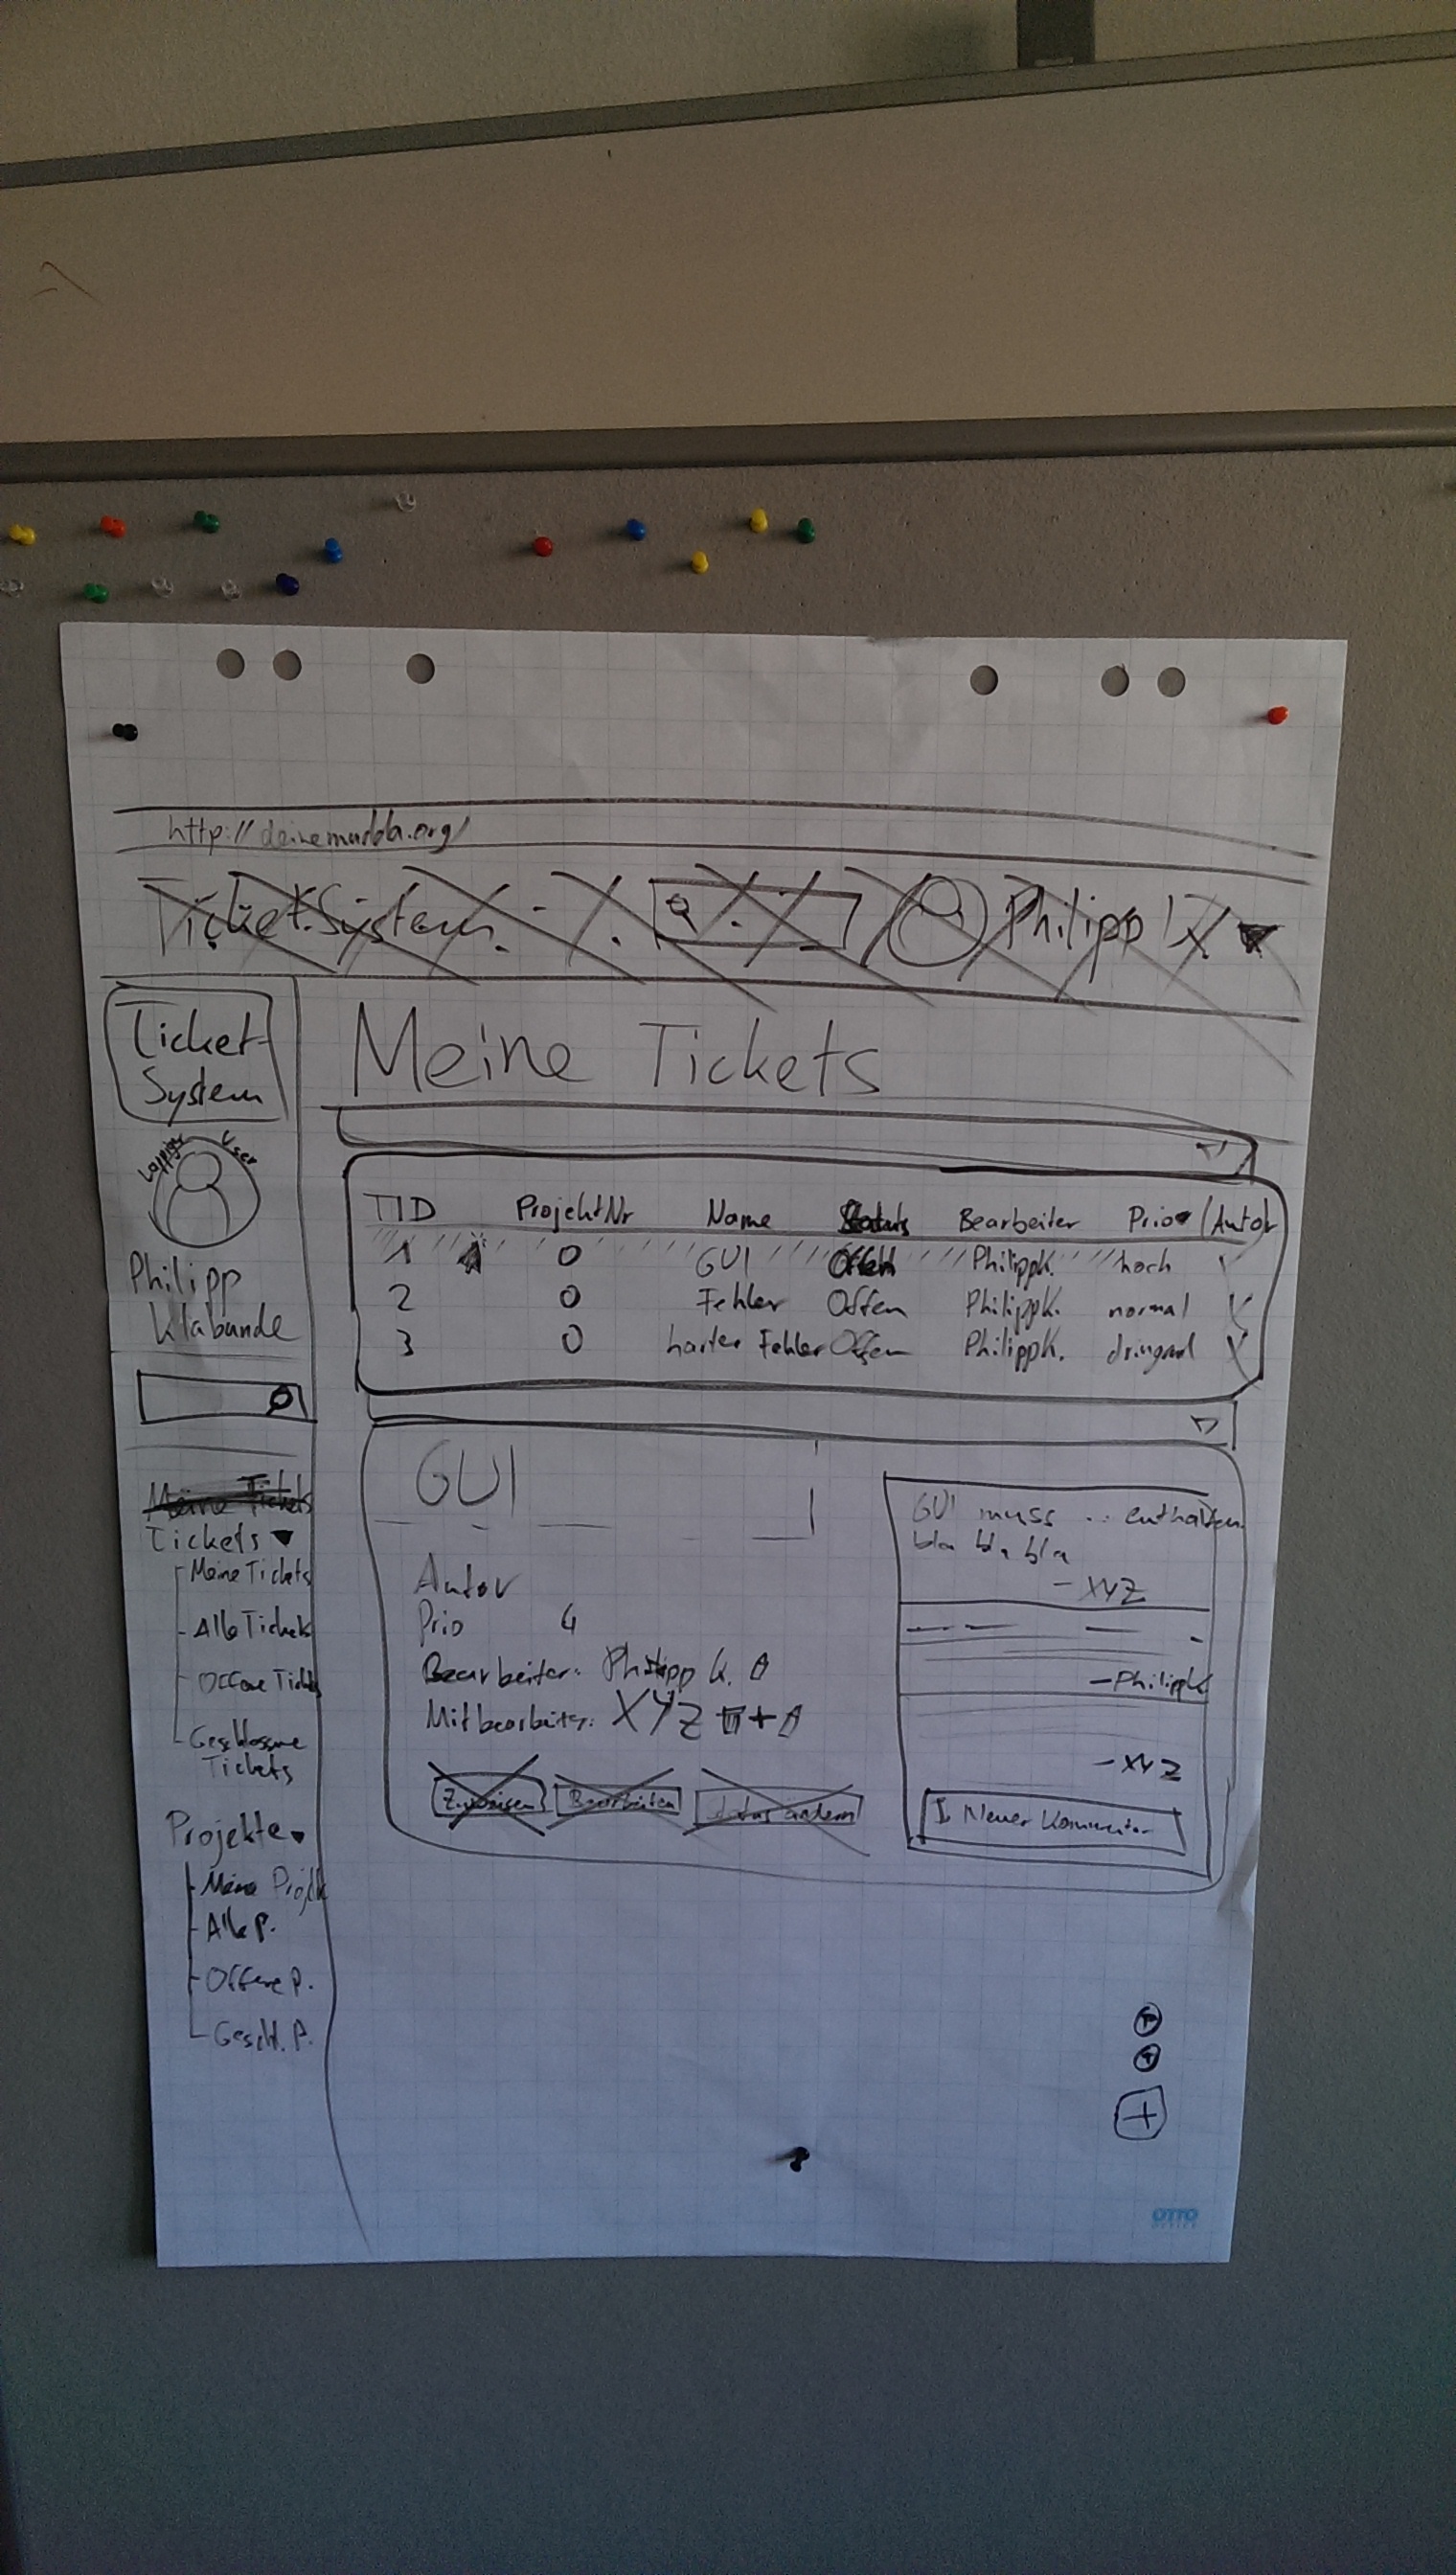 http://deinemudda.org/
Ticketsystem
Philipp K
Ticket-
System
User
Philipp
Klabunde
Meine Tickets
Tickets
Meine Tickets
Alle Tickets
Offene Tickets
Geschlossene
Tickets
Projekte
Meine Projekte
Alle P.
Offene P.
Geschl. P.
Meine Tickets
TID ProjektNr Name Status Bearbeiter Prio / Autor
1 0 GUI Offen PhilippK. hoch
2 0 Fehler Offen PhilippK. normal X
3 0 harter Fehler Offen PhilippK. dringend X
GUI
Autor
Prio 4
Bearbeiter: Philipp K.
Mitbearbeiter: XYZ +
Zuweisen Bearbeiten Status ändern
GUI muss .. enthalten
bla bla bla
- XYZ
- PhilippK
- XYZ
I Neuer Kommentar
P
T
+
OTTO
OFFICE